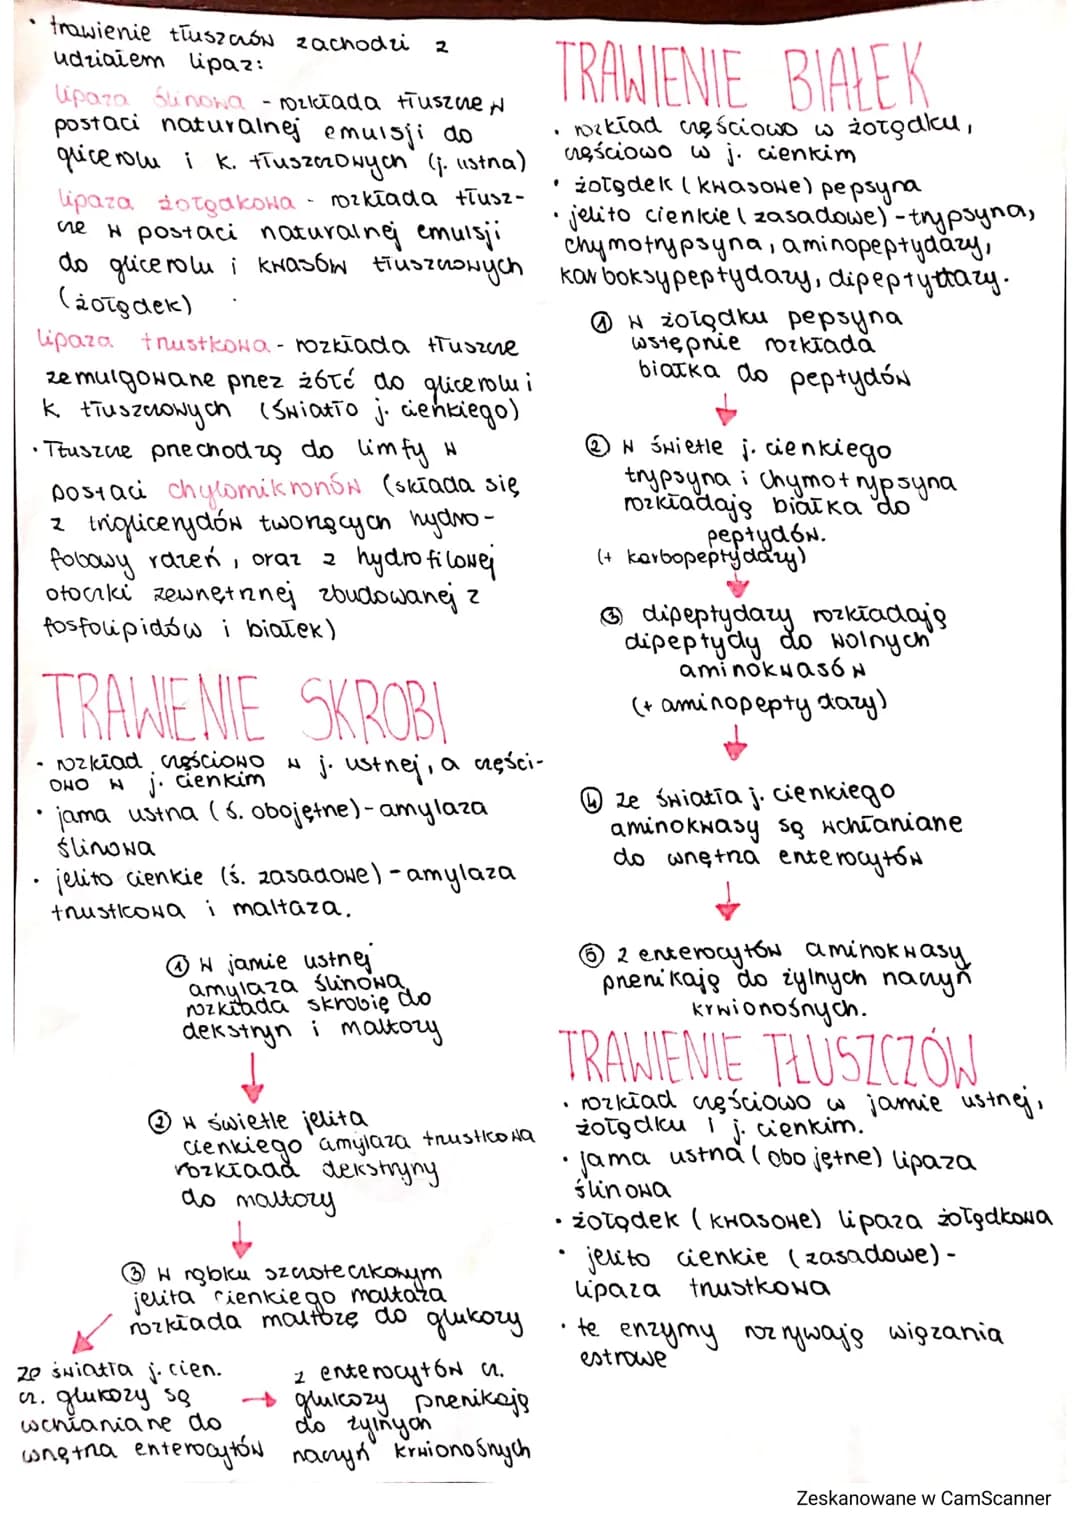 • trawienie tłuszczów zachodzi z
udziałem lipaz:
lipaza ślinowa - rozkłada tłuszcze w
postaci naturalnej emulsji do
glicerolu i k. tłuszczowych (j. ustna)
lipaza żołądkowa - rozkłada tłusz-
cze w postaci naturalnej emulsji
do glicerolu i kwasów tłuszczowych
(żołądek)
lipaza trzustkowa - rozkłada tłuszcze
zemulgowane przez żółć do glicerolu i
k tłuszczowych (światło j. cienkiego)
• Tłuszcze przechodzą do limfy w
postaci chylomikronów (składa się
z triglicerydów tworzących hydro-
fobowy rdzeń, oraz z hydrofilowej
otoczki zewnętrznej zbudowanej z
fosfolipidów i białek)
TRAWIENIE SKROBI
• rozkład częściowo w j. ustnej, a części-
owo w j. cienkim
• jama ustna (ś. obojętne) - amylaza
ślinowa
• jelito cienkie (ś. zasadowe) - amylaza
trzustkowa i maltaza.
① w jamie ustnej
amylaza ślinowa
rozkłada skrobię do
dekstryn i maltozy
② w świetle jelita
cienkiego amylaza trzustkowa
rozkłada dekstryny
do maltozy
③ w rąbku szczoteczkowym
jelita cienkiego maltaza
rozkłada maltozę do glukozy
ze światła j. cien.
cz. glukozy są
wchłaniane do
wnętrza enterocytów
z enterocytów cz.
glukozy przenikają
do żylnych
naczyń krwionośnych
TRAWIENIE BIAŁEK
• rozkład częściowo w żołądku,
częściowo w j. cienkim
• żołądek (kwasowe) pepsyna
• jelito cienkie (zasadowe) - trypsyna,
chymotrypsyna, aminopeptydazy,
karboksypeptydazy, dipeptydazy.
① w żołądku pepsyna
wstępnie rozkłada
białka do peptydów
② w świetle j. cienkiego
trypsyna i chymotrypsyna
rozkładają białka do
peptydów.
(+ karbopeptydazy)
③ dipeptydazy rozkładają
dipeptydy do wolnych
aminokwasów
(+ aminopeptydazy)
④ ze światła j. cienkiego
aminokwasy są wchłaniane
do wnętrza enterocytów
⑤ z enterocytów aminokwasy
przenikają do żylnych naczyń
krwionośnych.
TRAWIENIE TŁUSZCZÓW
• rozkład częściowo w jamie ustnej,
żołądku i j. cienkim.
• jama ustna (obojętne) lipaza
ślinowa
• żołądek (kwasowe) lipaza żołądkowa
• jelito cienkie (zasadowe) -
lipaza trzustkowa
• te enzymy rozrywają wiązania
estrowe
Zeskanowane w CamScanner